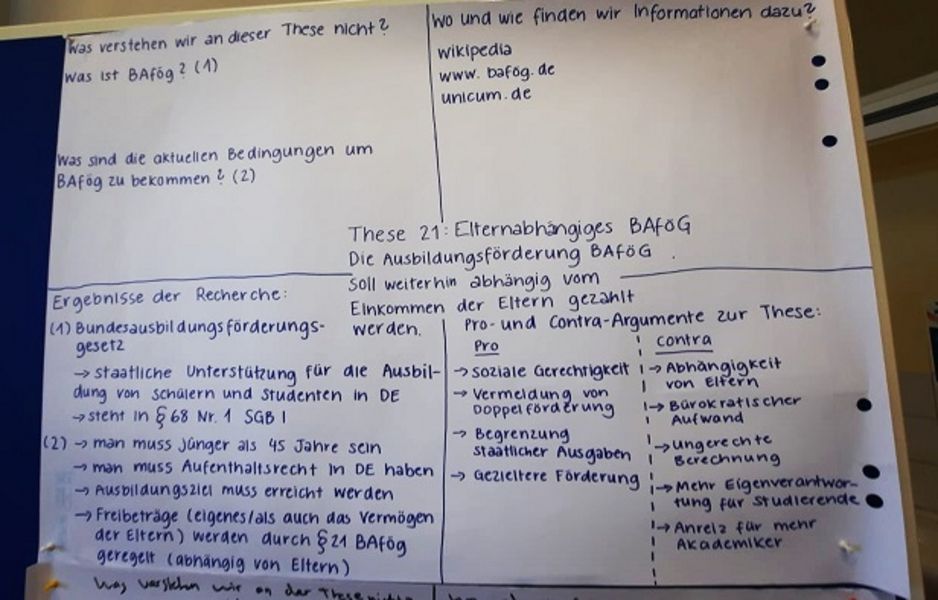 Was verstehen wir an dieser These nicht?
Was ist BAfög? (1)
Was sind die aktuellen Bedingungen um
BAfög zu bekommen? (2)
Wo und wie finden wir Informationen dazu?
wikipedia
www.bafög.de
unicum.de
These 21: Elternabhängiges BAföG
Die Ausbildungsförderung BAföG
soll weiterhin abhängig vom
Einkommen der Eltern gezahlt
werden.
Ergebnisse der Recherche:
(1) Bundesausbildungsförderungs-
gesetz
→ staatliche Unterstützung für die Ausbil-
dung von Schülern und Studenten in DE
→ steht in § 68 Nr. 1 SGB I
(2) → man muss jünger als 45 Jahre sein
→ man muss Aufenthaltsrecht in DE haben
→ Ausbildungsziel muss erreicht werden
→ Freibeträge (eigenes/als auch das Vermögen
der Eltern) werden durch § 21 BAfög
geregelt (abhängig von Eltern)
Pro- und Contra-Argumente zur These:
Pro
→ soziale Gerechtigkeit
→ Vermeidung von
Doppelförderung
→ Begrenzung
staatlicher Ausgaben
→ Gezieltere Förderung
contra
→ Abhängigkeit
von Eltern
→ Bürokratischer
Aufwand
→ ungerechte
Berechnung
→ Mehr Eigenverantwor-
tung für Studierende
→ Anreiz für mehr
Akademiker
Was verstehn wir an der These nicht